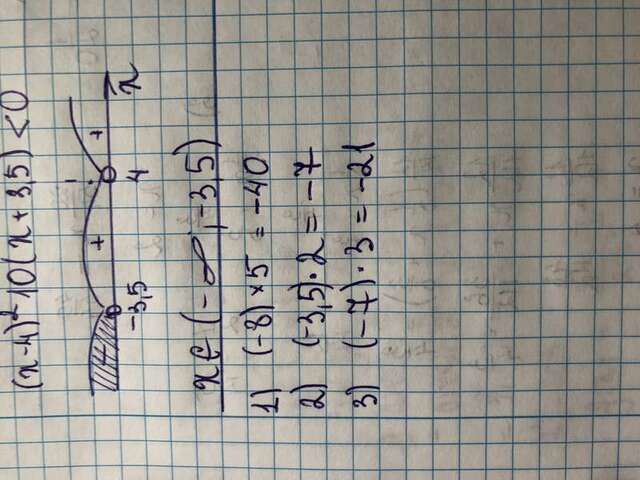 (x-4)²10(x+3,5)<0
+ +
-3,5 4 x
x∈(-∞;-3,5)
1) (-8)×5=-40
2) (-3,5)·2=-7
3) (-7)·3=-21